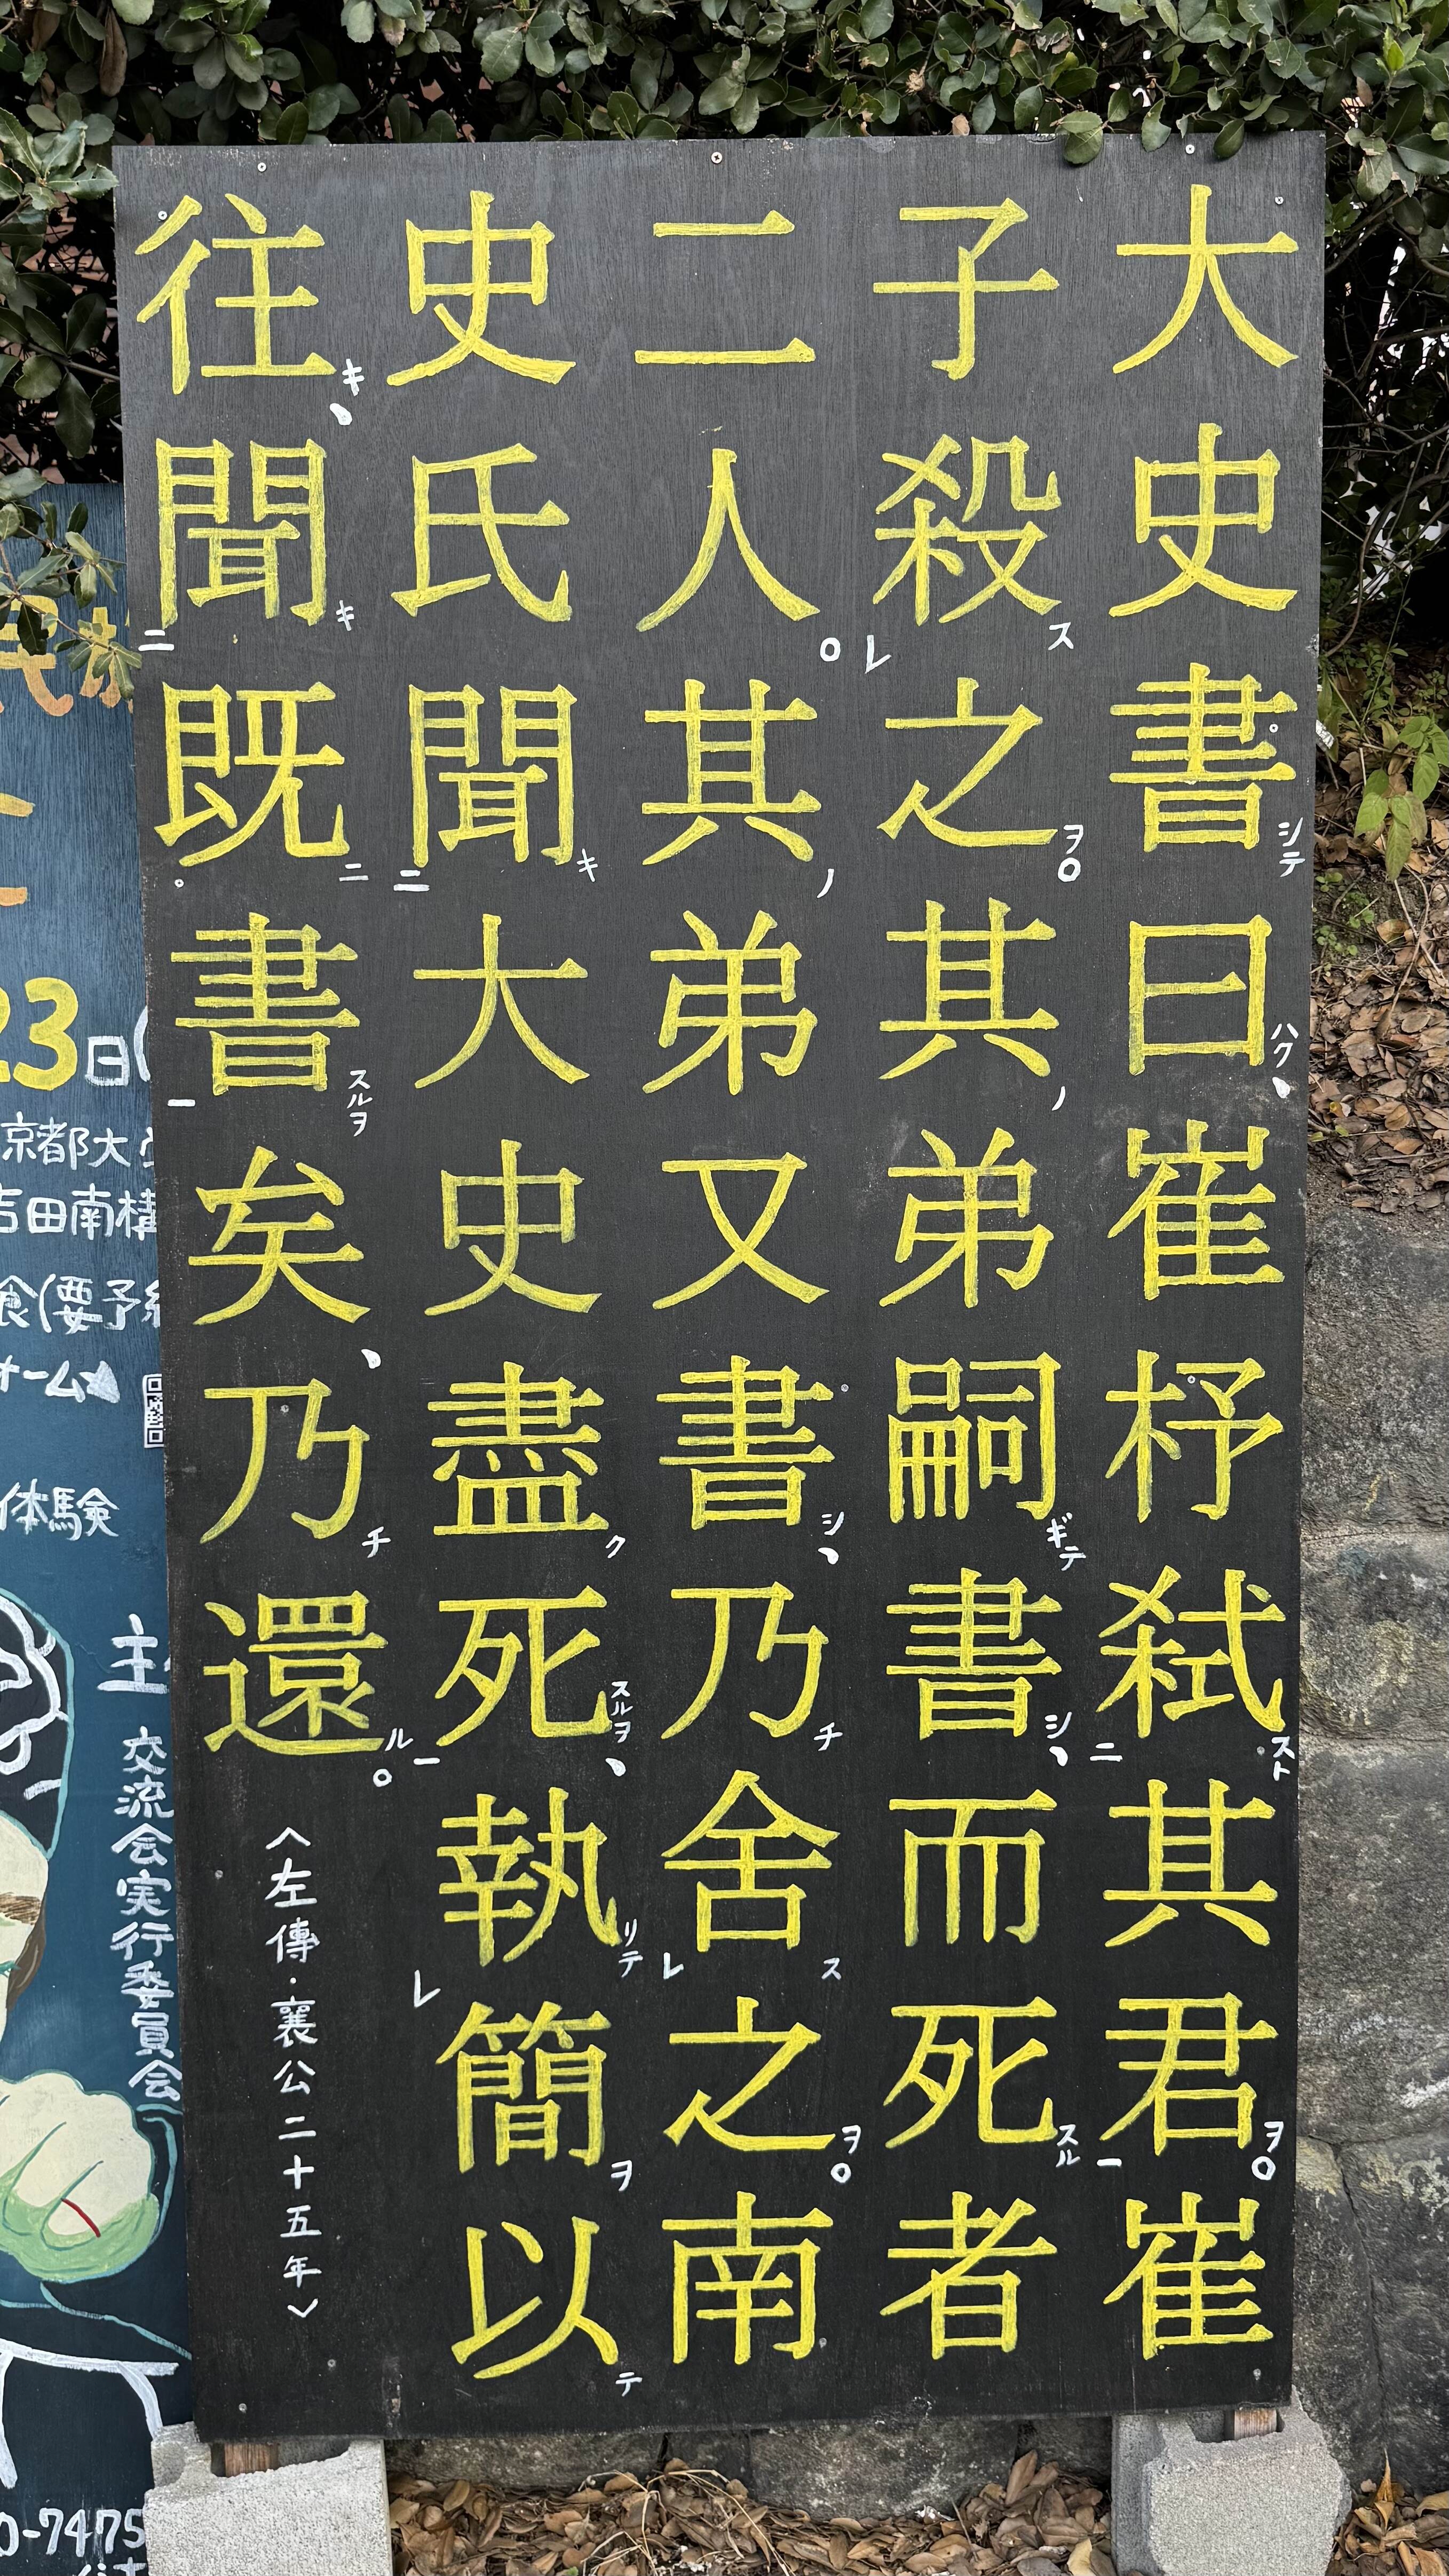 大史書シテ曰ハク、崔杼弑ストニ其君ヲ一。崔
子殺スレ之ヲ。其ノ弟嗣ギテ書シ、而死スル者
二人。其ノ弟又書シ、乃チ舍スレ之ヲ。南
史氏聞キニ大史盡ク死スルヲ一、執リテレ簡ヲ以テ
往キ、聞キニ既ニ書スルヲ一矣、乃チ還ル。
〈左傳・襄公二十五年〉
23日(
京都大
吉田南構
食(要予約
ォーム
体験
主
交流会実行委員会
0-7475